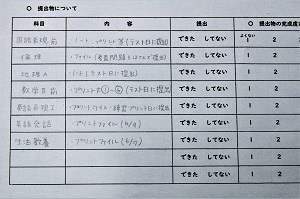 ○ 提出物について
科目 内容 提出 ○ 提出物の完成度
よくない
国語表現 ・ノート、プリント等(テスト日に提出) できた してない 1 2
倫理 ・ファイル できた してない 1 2
地理A ・ノート(テスト日に提出) できた してない 1 2
数学Ⅱ ・プリント ①~⑥(テスト日に提出) できた してない 1 2
・プリントファイル・練習プリント日に提出 できた してない 1 2
英語会話 ・プリントファイル できた してない 1 2
生活教養 ・プリントファイル できた してない 1 2
できた してない 1 2
できた してない 1 2